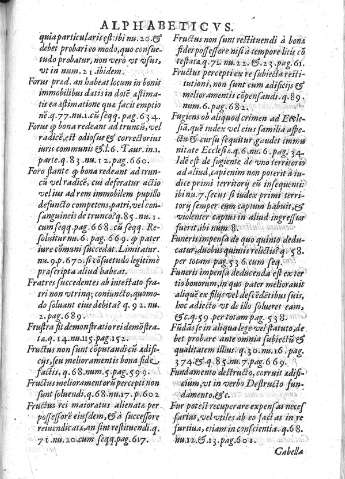 ALPHABETICVS.
quia particularis est: ibi nu. 20. &
debet probari eo modo, quo consue-
tudo probatur, non vero vt vsus,
vt in num. 21. ibidem.
Forus præd. an habeat locum in bonis
immobilibus datis in dotē æstima-
ti ea æstimatione quæ facit emptio
nē. q. 77. nu. 1. cū seqq. pag. 634.
Forus q bona redeant ad truncū, vel
radicē, est odiosus & correctorius
iuris communis & l. 6. Taur. in 1.
parte. q. 83. nu. 12. pag. 660.
Foro stante q bona redeant ad trun-
cū vel radicē, cui deferatur actio
vel ius ad rem immobilem pupilli
defuncto competens, patri, vel con-
sanguineis de trunco? q. 85. nu. 1.
cum seqq. pag. 668. cū seqq. Re-
soluitur nu. 6. pag. 669. q pater
iure cōmuni succedat. Limitatur.
nu. 9. p. 670. si cōsuetudo legitimè
præscripta aliud habeat.
Fratres succedentes ab intestato fra-
tri non vtring; coniuncto, quomo-
do soluant eius debita? q. 92. nu.
2. pag. 689.
Frustra fit demonstratio rei demōstra-
ta. q. 14. nu. 115. pag. 152.
Fructus non sunt cōputandi cū ædifi-
cijs, seu melioramentis bona fide
factis, q. 68. num. 5. pag. 599.
Fructus melioramentorū percepti non
sunt soluendi. q. 68. nu. 17. p. 602
Fructus rei maioratus alienata per
possessorē eiusdem, & à successore
reiuendicata an sint restituendi. q.
71. nu. 20. cum seqq. pag. 617.
Fructus non sunt restituendi à bonæ
fidei possessore nisi à tempore litis cō
testata. q. 72. nu. 22. & 23. pag. 61.
Fructus percepti ex re subiecta resti-
tutioni, non sunt cum ædificijs &
melioramentis cōpensandi. q. 89.
num. 6. pag. 682.
Fugiens ob aliquod crimen ad Eccle-
siã, quē index vel eius familia aspe-
ctu & cursu sequitur gaudet immu
nitate Ecclesiæ. q. 6. nu. 6. pag. 34.
Idē est de fugiente de vno territorio
ad aliud, sapienim non poterit à iu-
dice primi territorij eū insequenti:
ibi nu. 7. secus si iudex primi terri-
torij semper eum captum habuit, &
violenter captus in aliud ingressus
fuerit, ibi num. 8.
Funeris impensa de quo quinto dedu-
catur, duobus quintis relictis? q. 58.
per totam pag. 536. cum seq.
Funeris impensa deducenda est ex ter
tio bonorum, in quo pater melioraut
aliquē ex filijs vel descēdētibus suis,
hoc adiecto vt de illo solueret eam,
& c. q. 59. per totam pag. 538.
Fūdās se in aliqua lege vel statuto, de-
bet probare ante omnia subiectū &
qualitatem illius. q. 30. nu. 16. pag.
374. & q. 85. nu. 7. pag. 669.
Fundamento destructo, corruit ædifi-
cium, vt in verbo Destructo fun-
damento. & c.
Fur potest recuperare expensas neces
sarias, vel vtiles ab eo factas in re
furtiua, etiam in conscientia. q. 68.
nu. 12. & 23. pag. 601.
Gabella